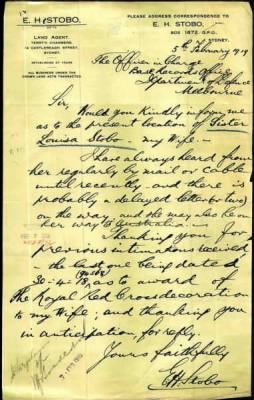 E. H. STOBO,
LAND AGENT.
TERRY'S CHAMBERS,
14 CASTLEREAGH STREET,
SYDNEY.
ESTABLISHED 21 YEARS
ALL BUSINESS UNDER THE
CROWN LANDS ACTS TRANSACTED
PLEASE ADDRESS CORRESPONDENCE TO
E. H. STOBO,
BOX 1872, G.P.O.,
SYDNEY.
5th February 1919
The Officer in Charge
Base Records Office
Department of Defence
Melbourne
Sir,
Would you kindly inform me
as to the present location of Sister
Louisa Stobo - my Wife -
I have always heard from
her regularly by mail or cable
until recently and there is
probably a delayed letter (or two)
on the way, and she may also be on
her way to Australia
Thanking you for
previous intimations received
- the last one being dated
30-4-18, as to award of
The Royal Red Cross decoration
to my Wife; and thanking you
in anticipation, for reply.
Yours faithfully
E H. Stobo